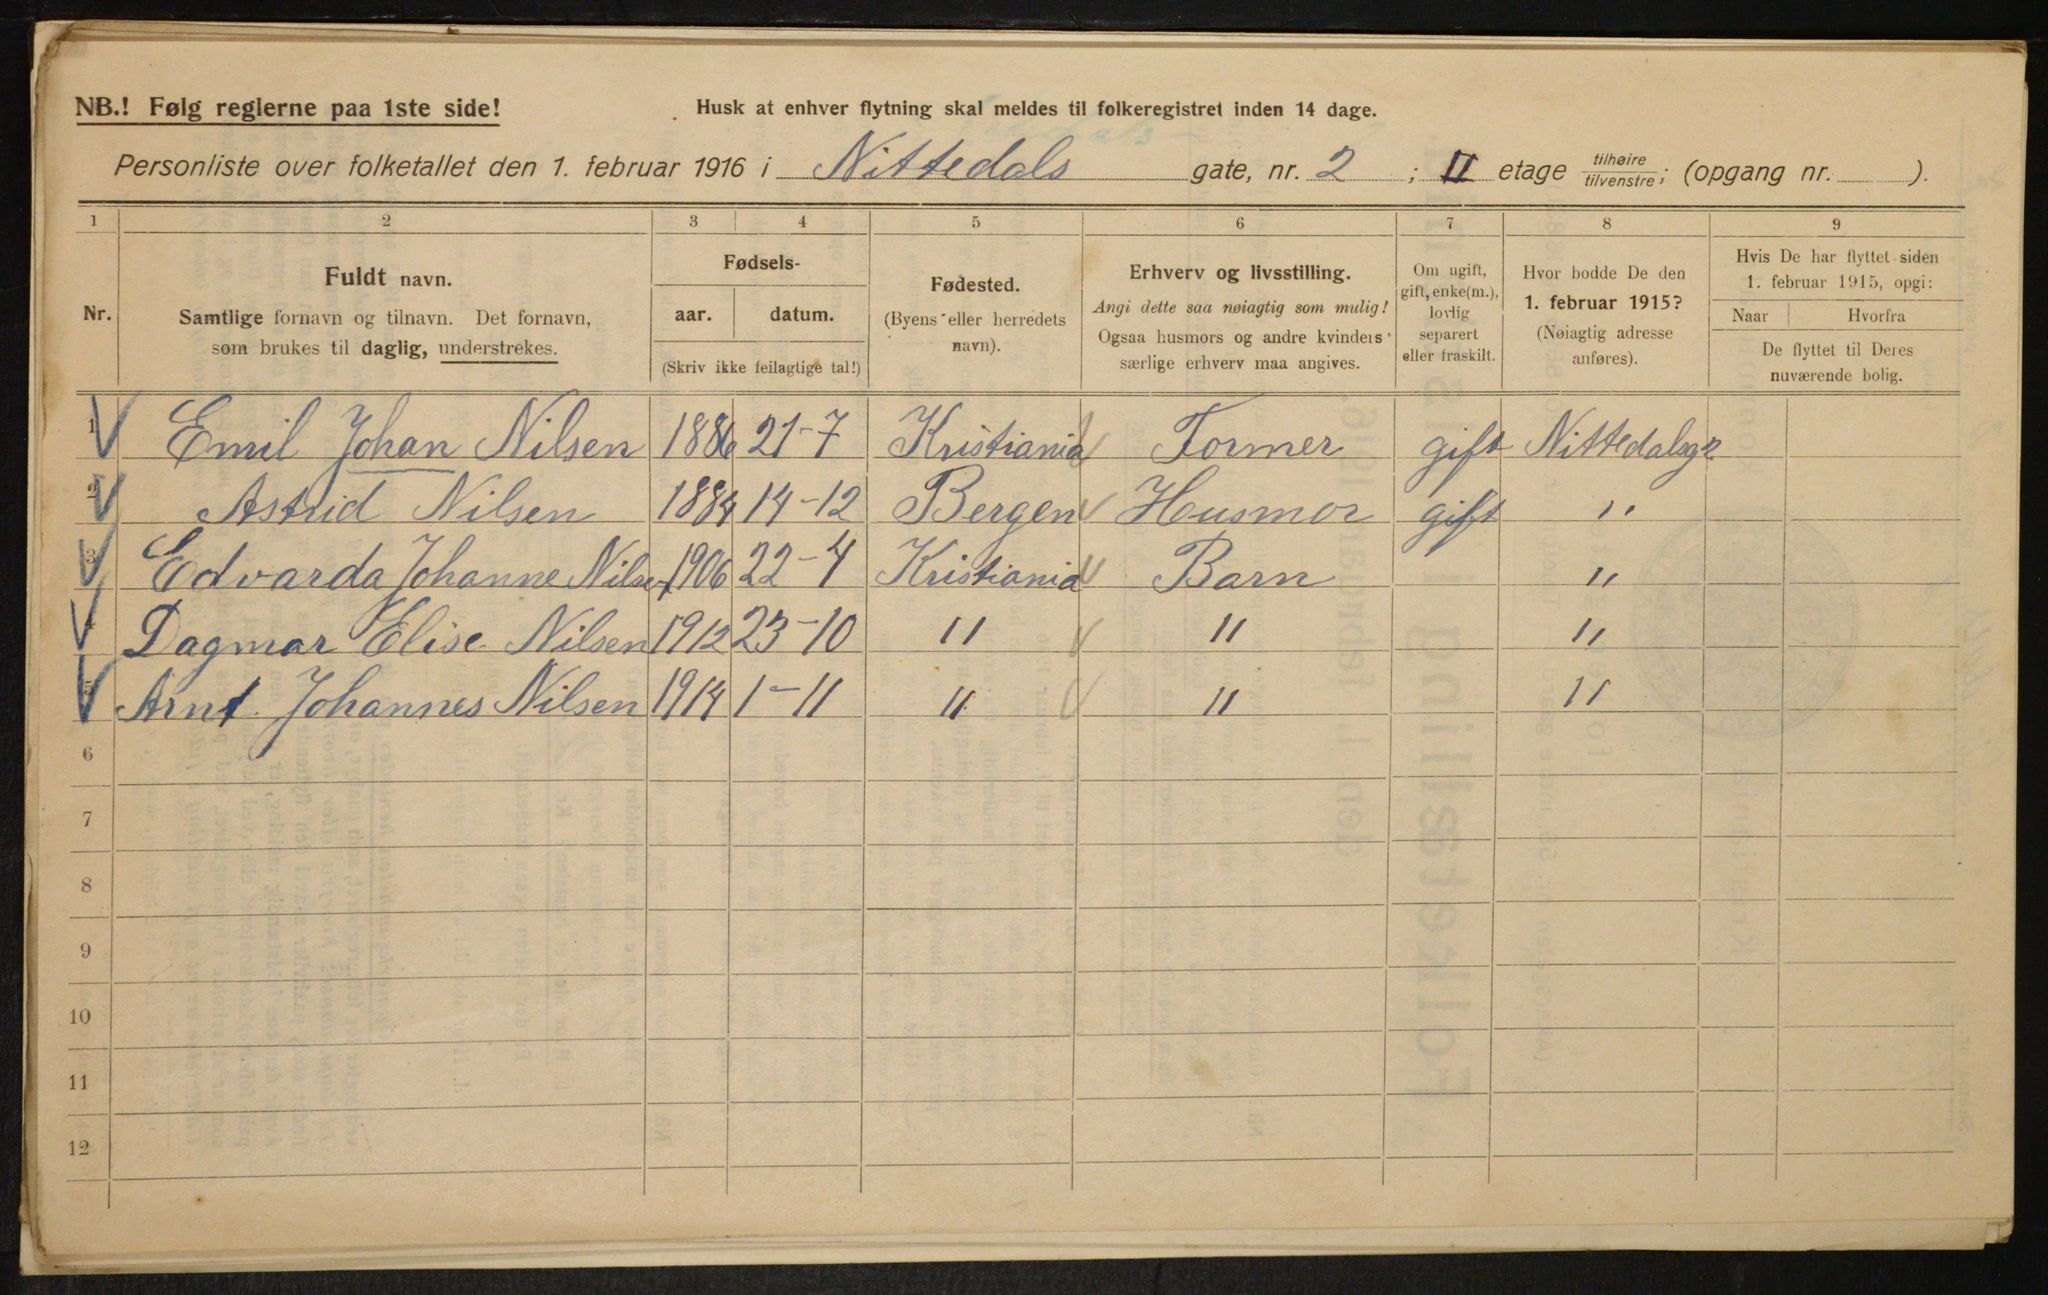 NB.! Følg reglerne paa 1ste side!
Husk at enhver flytning skal meldes til folkeregistret inden 14 dage.
Personliste over folketallet den 1. februar 1916 i Nittedals gate, nr. 2 ; II etage tilhøire/tilvenstre; (opgang nr. ).
1 2 3 4 5 6 7 8 9
Nr.
Fuldt navn.
Samtlige fornavn og tilnavn. Det fornavn,
som brukes til daglig, understrekes.
Fødsels-
aar. datum.
(Skriv ikke feilagtige tal!)
Fødested.
(Byens eller herredets
navn).
Erhverv og livsstilling.
Angi dette saa nøiagtig som mulig!
Ogsaa husmors og andre kvinders
særlige erhverv maa angives.
Om ugift,
gift, enke(m.),
lovlig
separert
eller fraskilt.
Hvor bodde De den
1. februar 1915?
(Nøiagtig adresse
anføres).
Hvis De har flyttet siden
1. februar 1915, opgi:
Naar Hvorfra
De flyttet til Deres
nuværende bolig.
1 Emil Johan Nilsen 1886 21-7 Kristiania Former gift Nittedalsg 2
2 Astrid Nilsen 1884 14-12 Bergen Husmor gift "
3 Edvarda Johanne Nilsen 1906 22-4 Kristiania Barn "
4 Dagmar Elise Nilsen 1912 23-10 " " "
5 Arnt Johannes Nilsen 1914 1-11 " " "
6
7
8
9
10
11
12